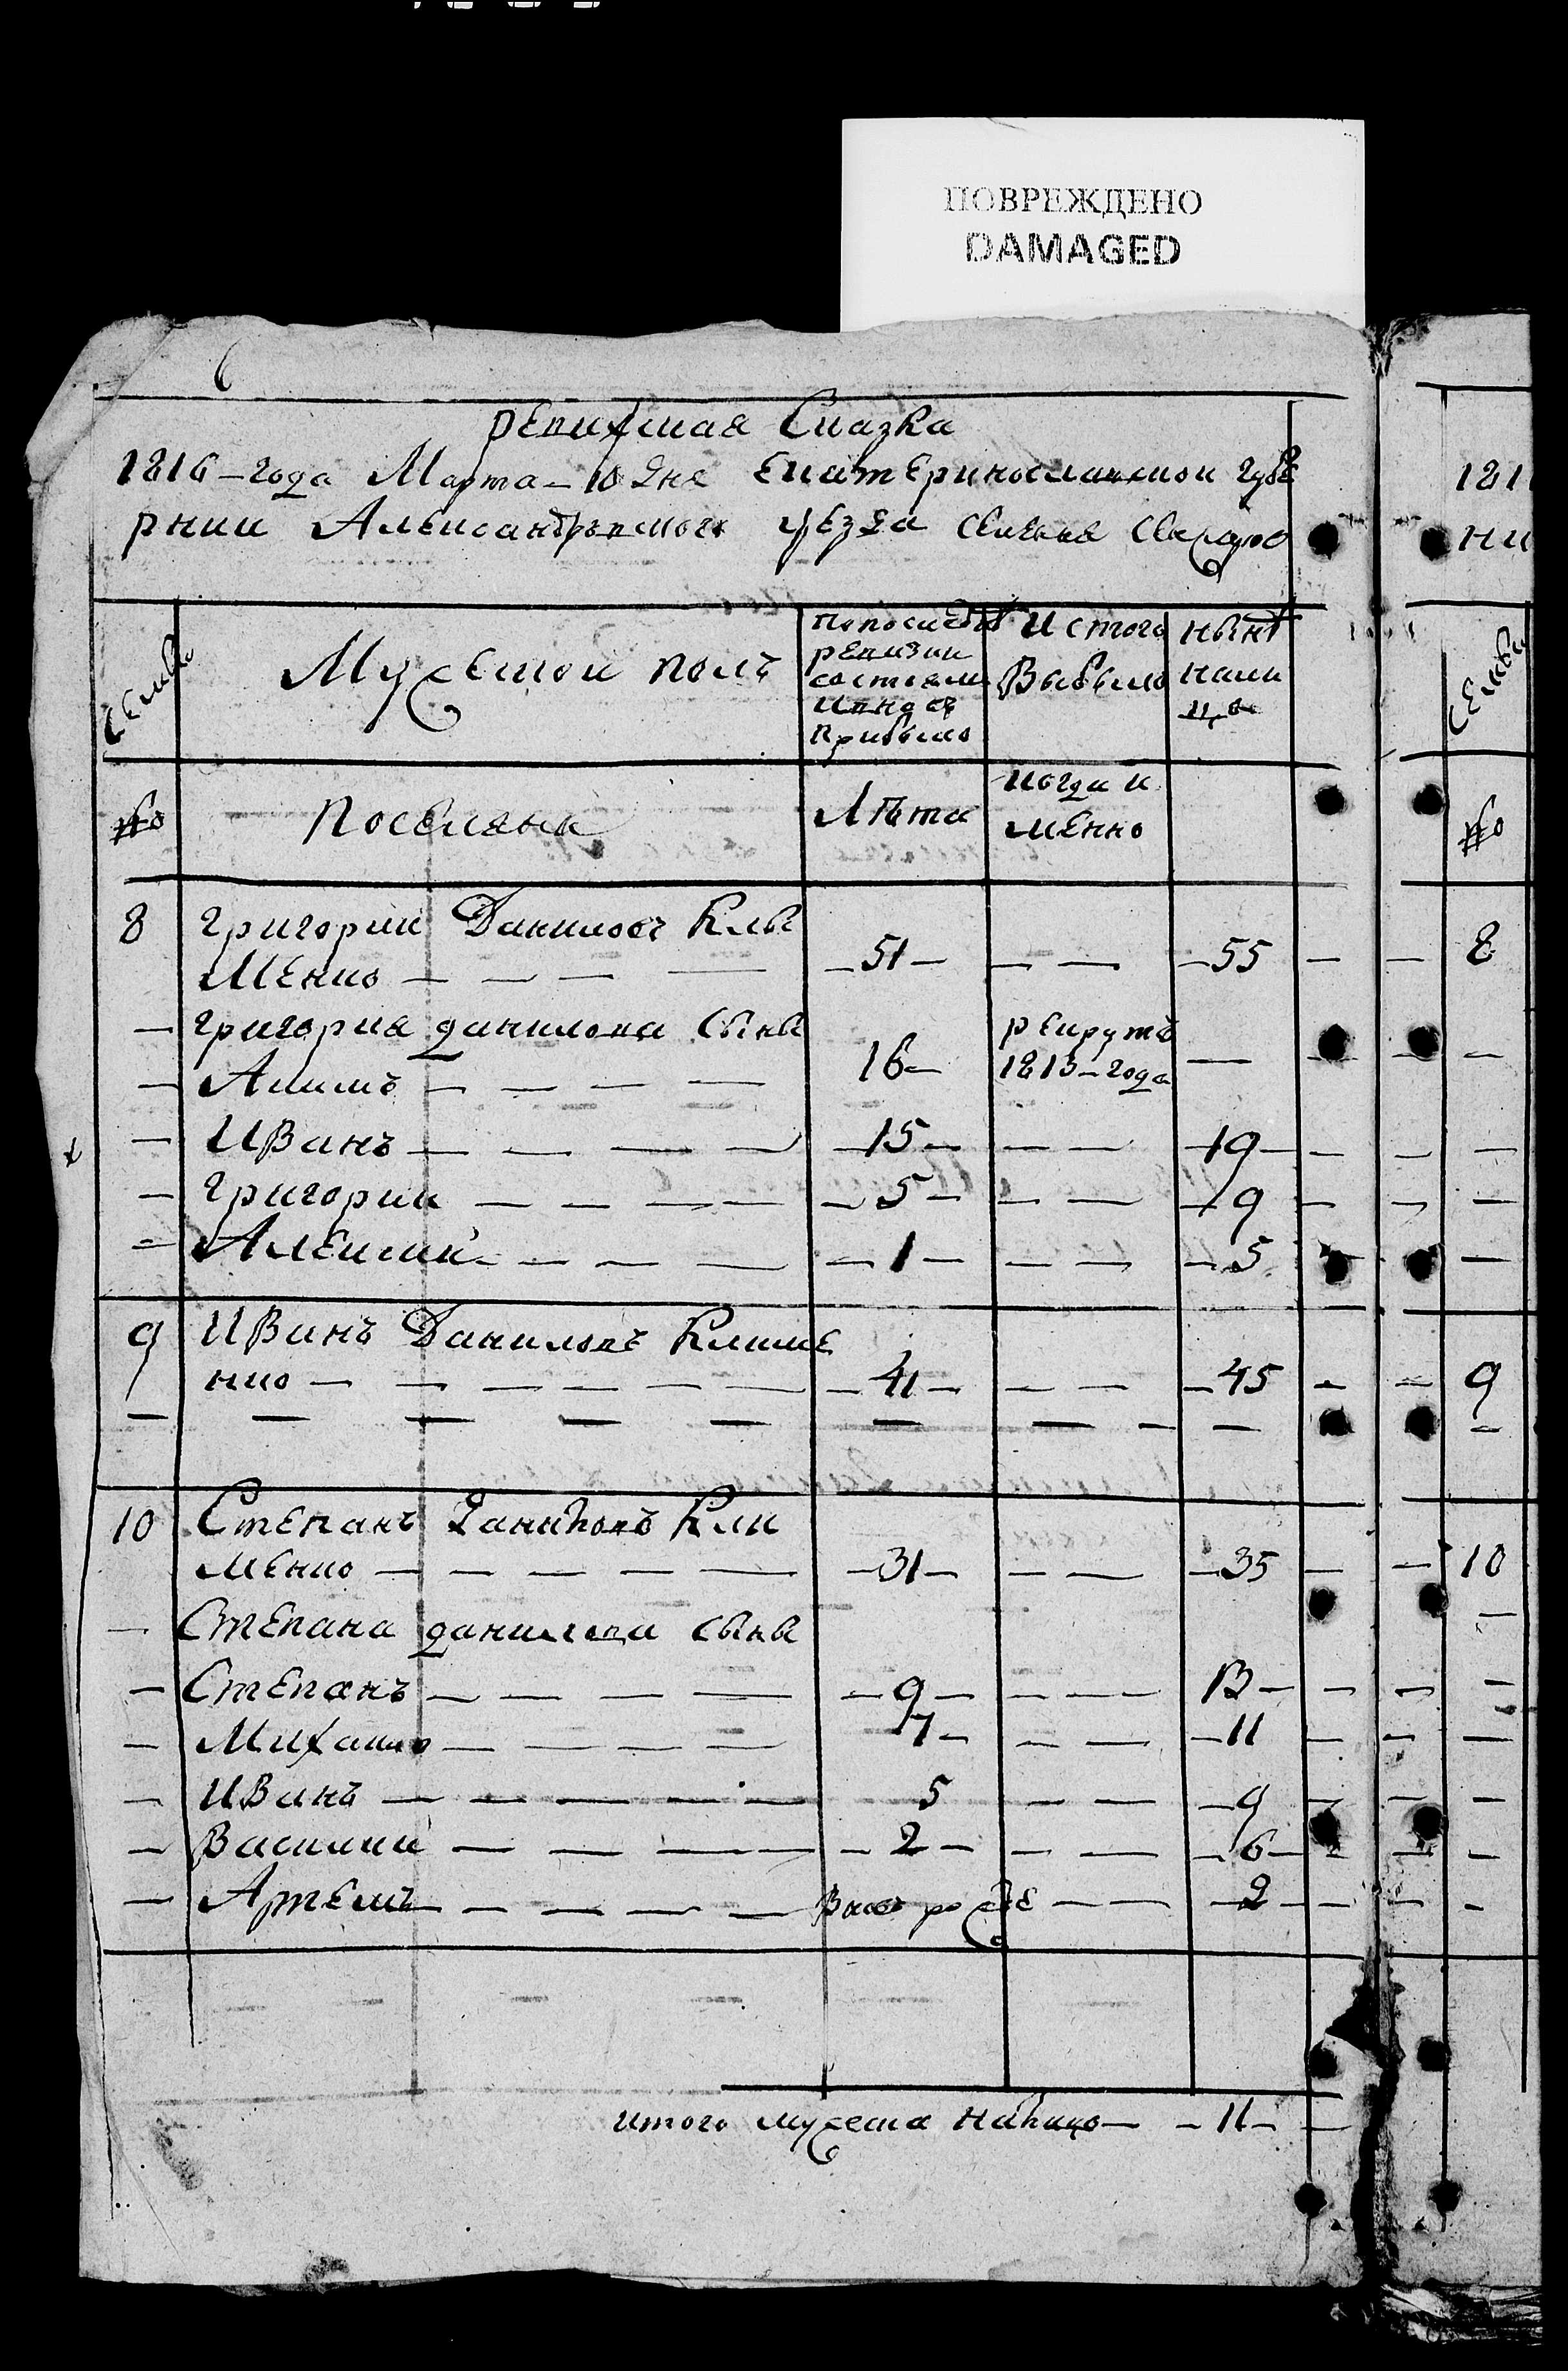 ПОВРЕЖДЕНО
DAMAGED
6
ревижская Сказка
1816-года Марта-10 дня Екатеринославской губе
рнии Александръвского уезда
Мужескои полъ
По последн
ревизии
состояли
и после
прибыло
Ис того
Выбыло
Нынѣ
нали
цо
семьи
№
Поселяна
Лѣта
когда и
менно
№
8 Григории Даниловъ Кли
менко — — — — -51- — — -55 — — 8
— Григория данилова сыны
— Акимъ — — — — 16- рекрутъ
1813-года —
— Иванъ — — — — -15- — — -19-
— Григории — — — — -5- — — -9
— Алексии — — — — -1- — — -5
9 Иванъ Даниловъ Климе
нко — — — — — -41- — — -45 — — 9
10 Степанъ Даниловъ Кли
менко — — — — -31- — — -35 — — 10
— Степана данилова сыны
— Степанъ — — — — -9- — — 13-
— Михаило — — — — 7- — — -11
— Иванъ — — — — 5 — — -9
— Василии — — — — -2- — — -6-
— Артемъ — — — — Вновь рожде — — -2
итого мужеска налицо — -11-
181
ни